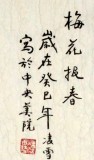 梅花报春
岁在癸巳年凌雪
写於中央美院